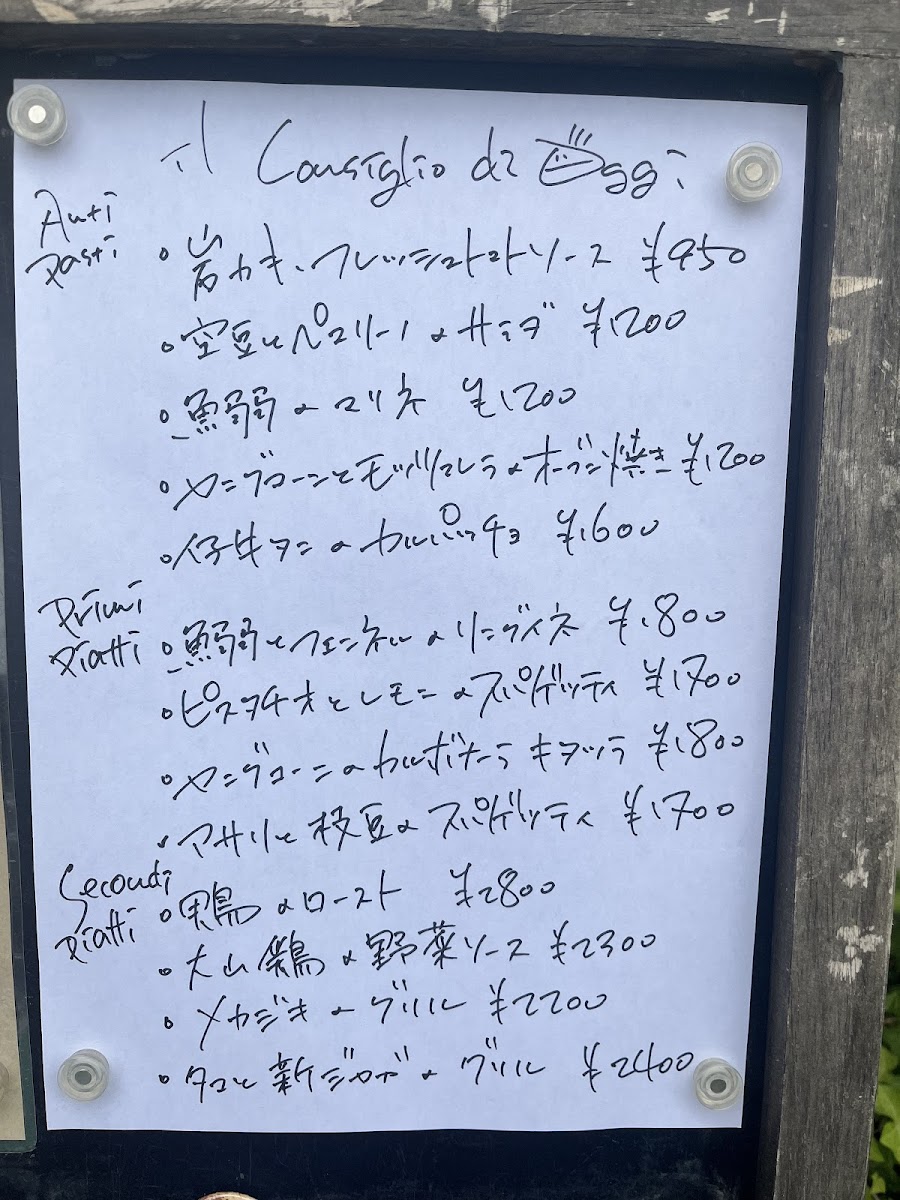 il Consiglio di Oggi
Anti
pasti
・岩カキ、フレッシュトマトソース ¥950
・空豆とペコリーノのサラダ ¥1200
・鰯のマリネ ¥1200
・ヤングコーンとモッツァレラのオーブン焼き ¥1200
・仔牛タンのカルパッチョ ¥1600
Primi
piatti
・鰯とフェンネルのリングイネ ¥1800
・ピスタチオとレモンのスパゲッティ ¥1700
・ヤングコーンのカルボナーラ キタッラ ¥1800
・アサリと枝豆のスパゲッティ ¥1700
Secondi
piatti
・鴨のロースト ¥2800
・大山鶏の野菜ソース ¥2300
・メカジキのグリル ¥2200
・タコと新ジャガのグリル ¥2400